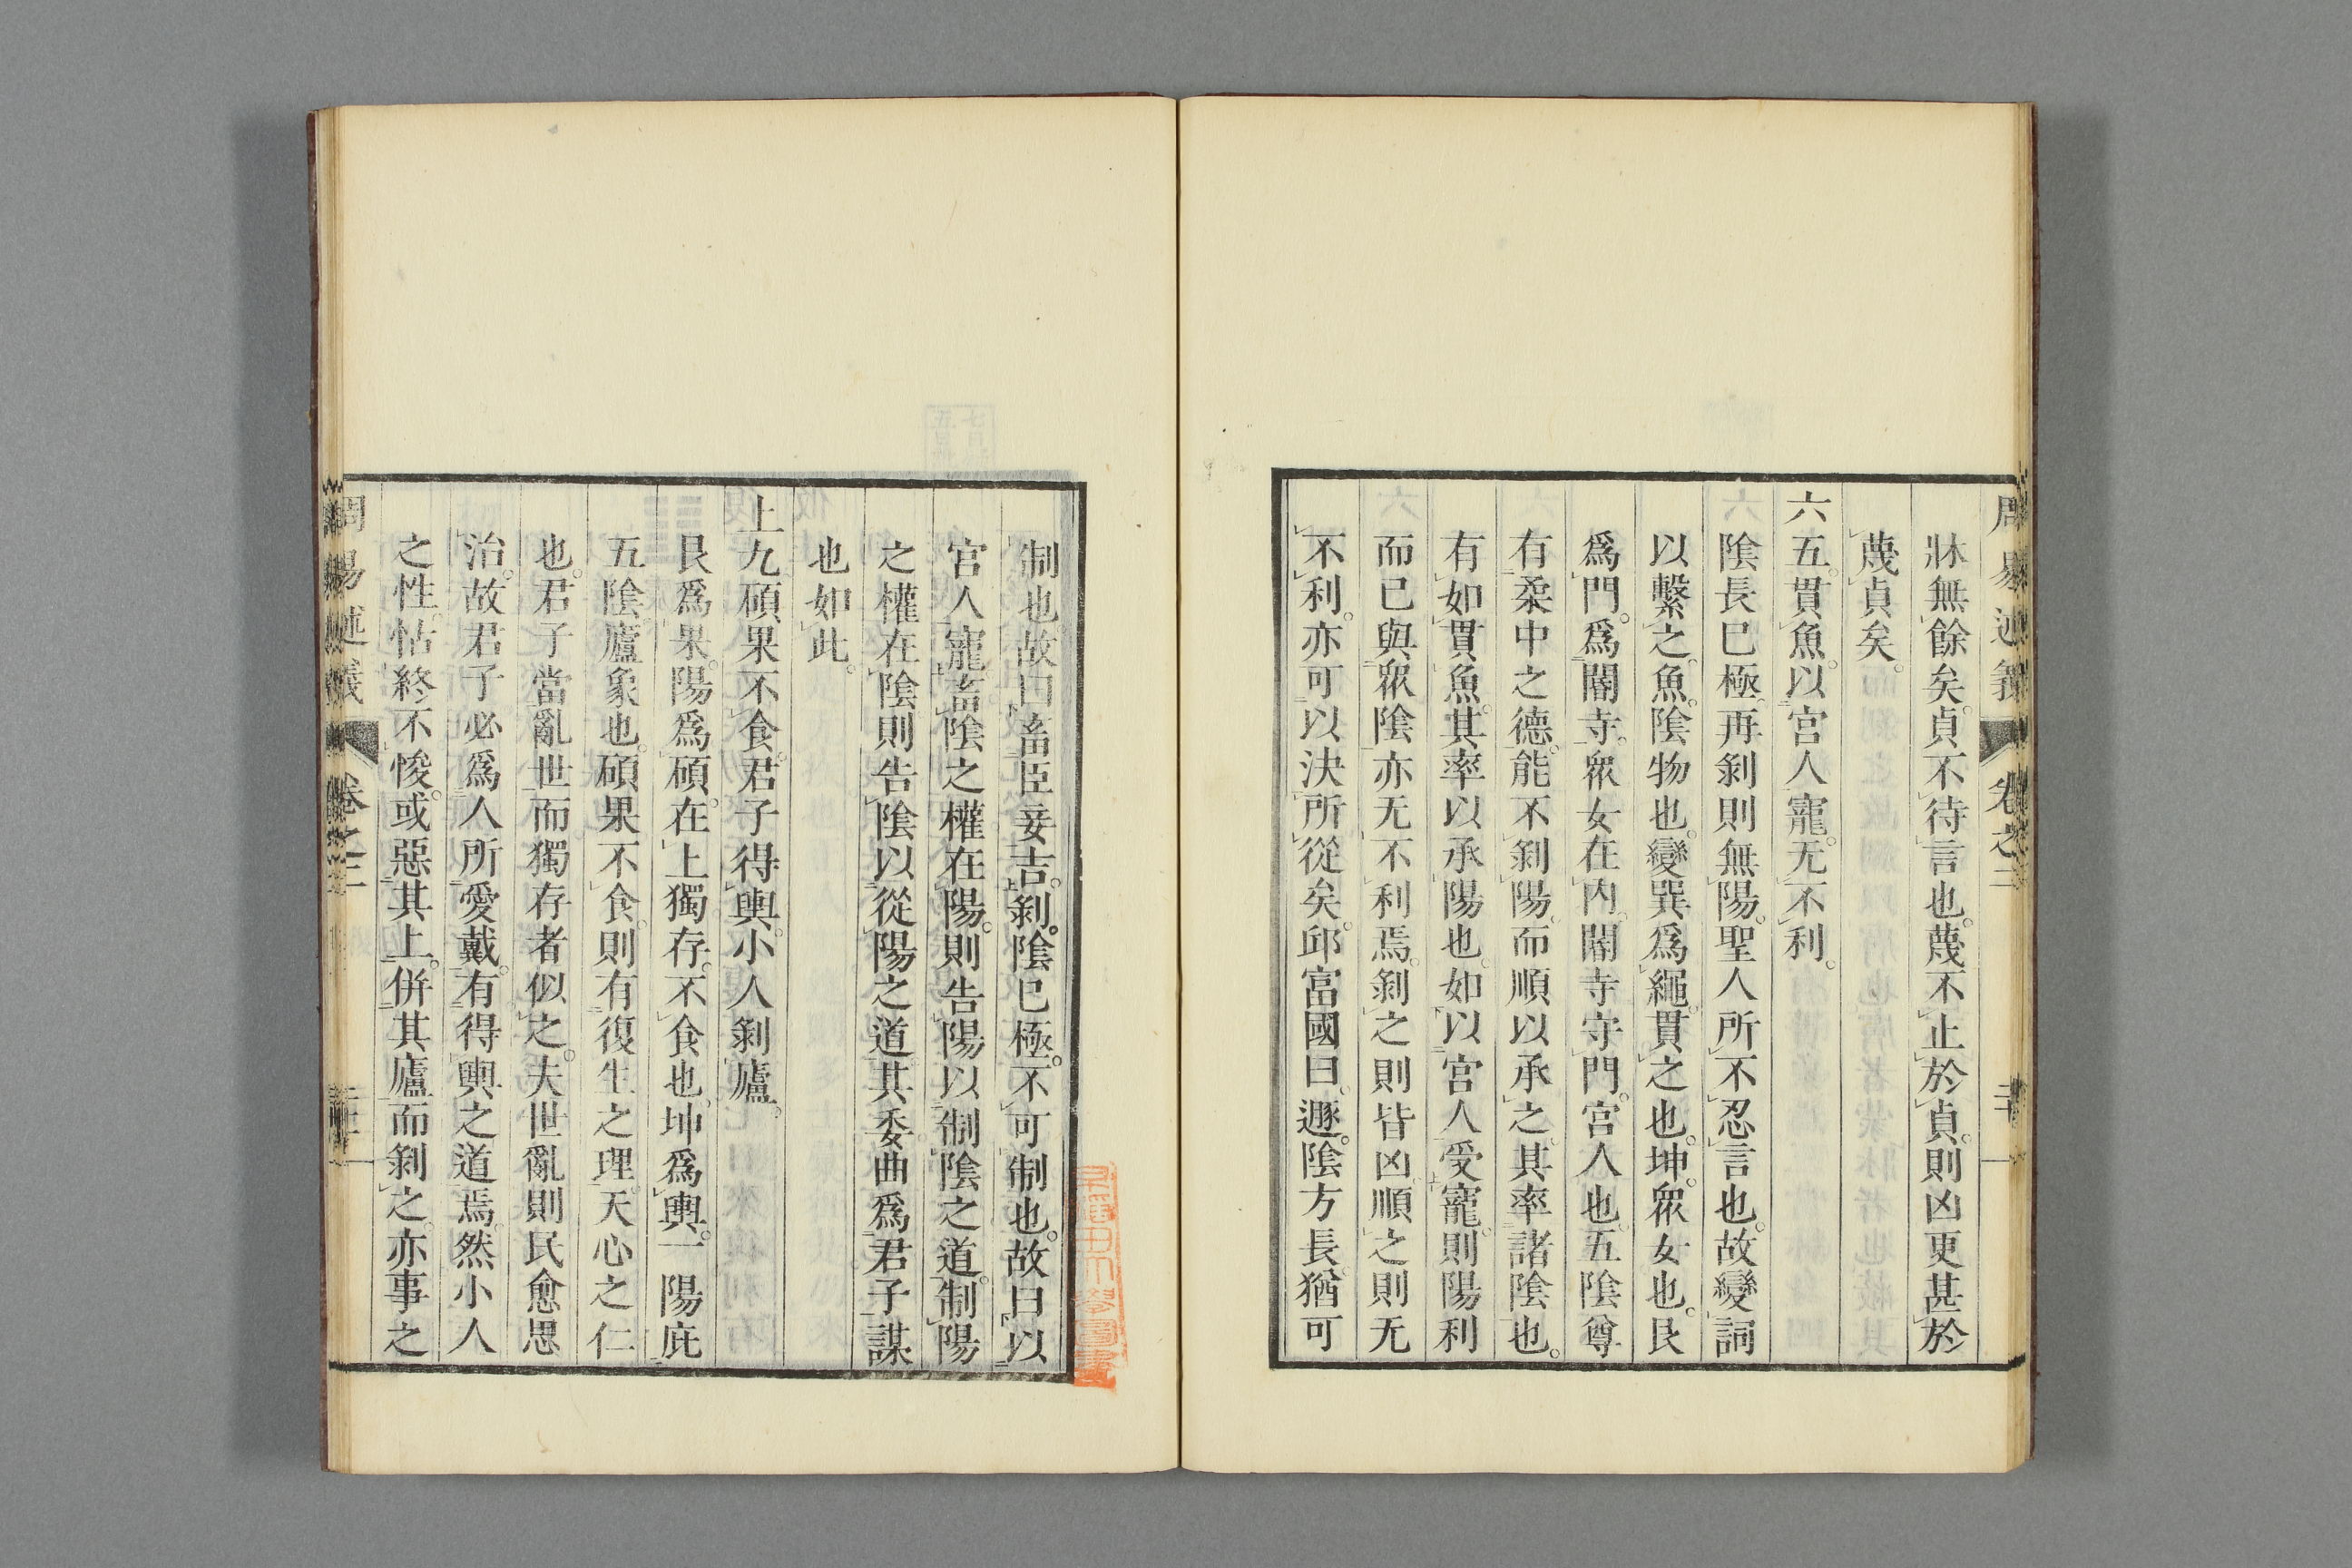 牀無餘矣。貞不待言也。蔑不止於貞。則凶更甚於
蔑貞矣。
六五。貫魚。以宮人寵。无不利。
陰長已極。再剝則無陽。聖人所不忍言也。故變詞
以繫之。魚。陰物也。變巽爲繩。貫之也。坤。衆女也。艮
爲門。爲閽寺。衆女在内。閽寺守門。宮人也。五陰尊
有柔中之德。能不剝陽。而順以承之。其率諸陰也。
有如貫魚。其率以承陽也。如以宮人受寵。則陽利
而已與衆陰亦无不利焉。剝之則皆凶。順之則无
不利。亦可以決所從矣。邱富國曰。遯。陰方長。猶可
制也。故曰畜臣妾吉。剝。陰已極。不可制也。故曰以
宮人寵。畜陰之權在陽。則告陽以制陰之道。制陽
之權在陰。則告陰以從陽之道。其委曲爲君子謀
也如此。
上九。碩果不食。君子得輿。小人剝廬。
艮爲果。陽爲碩。在上獨存。不食也。坤爲輿。一陽庇
五陰。廬象也。碩果不食。則有復生之理。天心之仁
也。君子當亂世而獨存者似之。夫世亂則民愈思
治。故君子必爲人所愛戴。有得輿之道焉。然小人
之性。怙終不悛。或惡其上。併其廬而剝之。亦事之
周易述義 卷之三